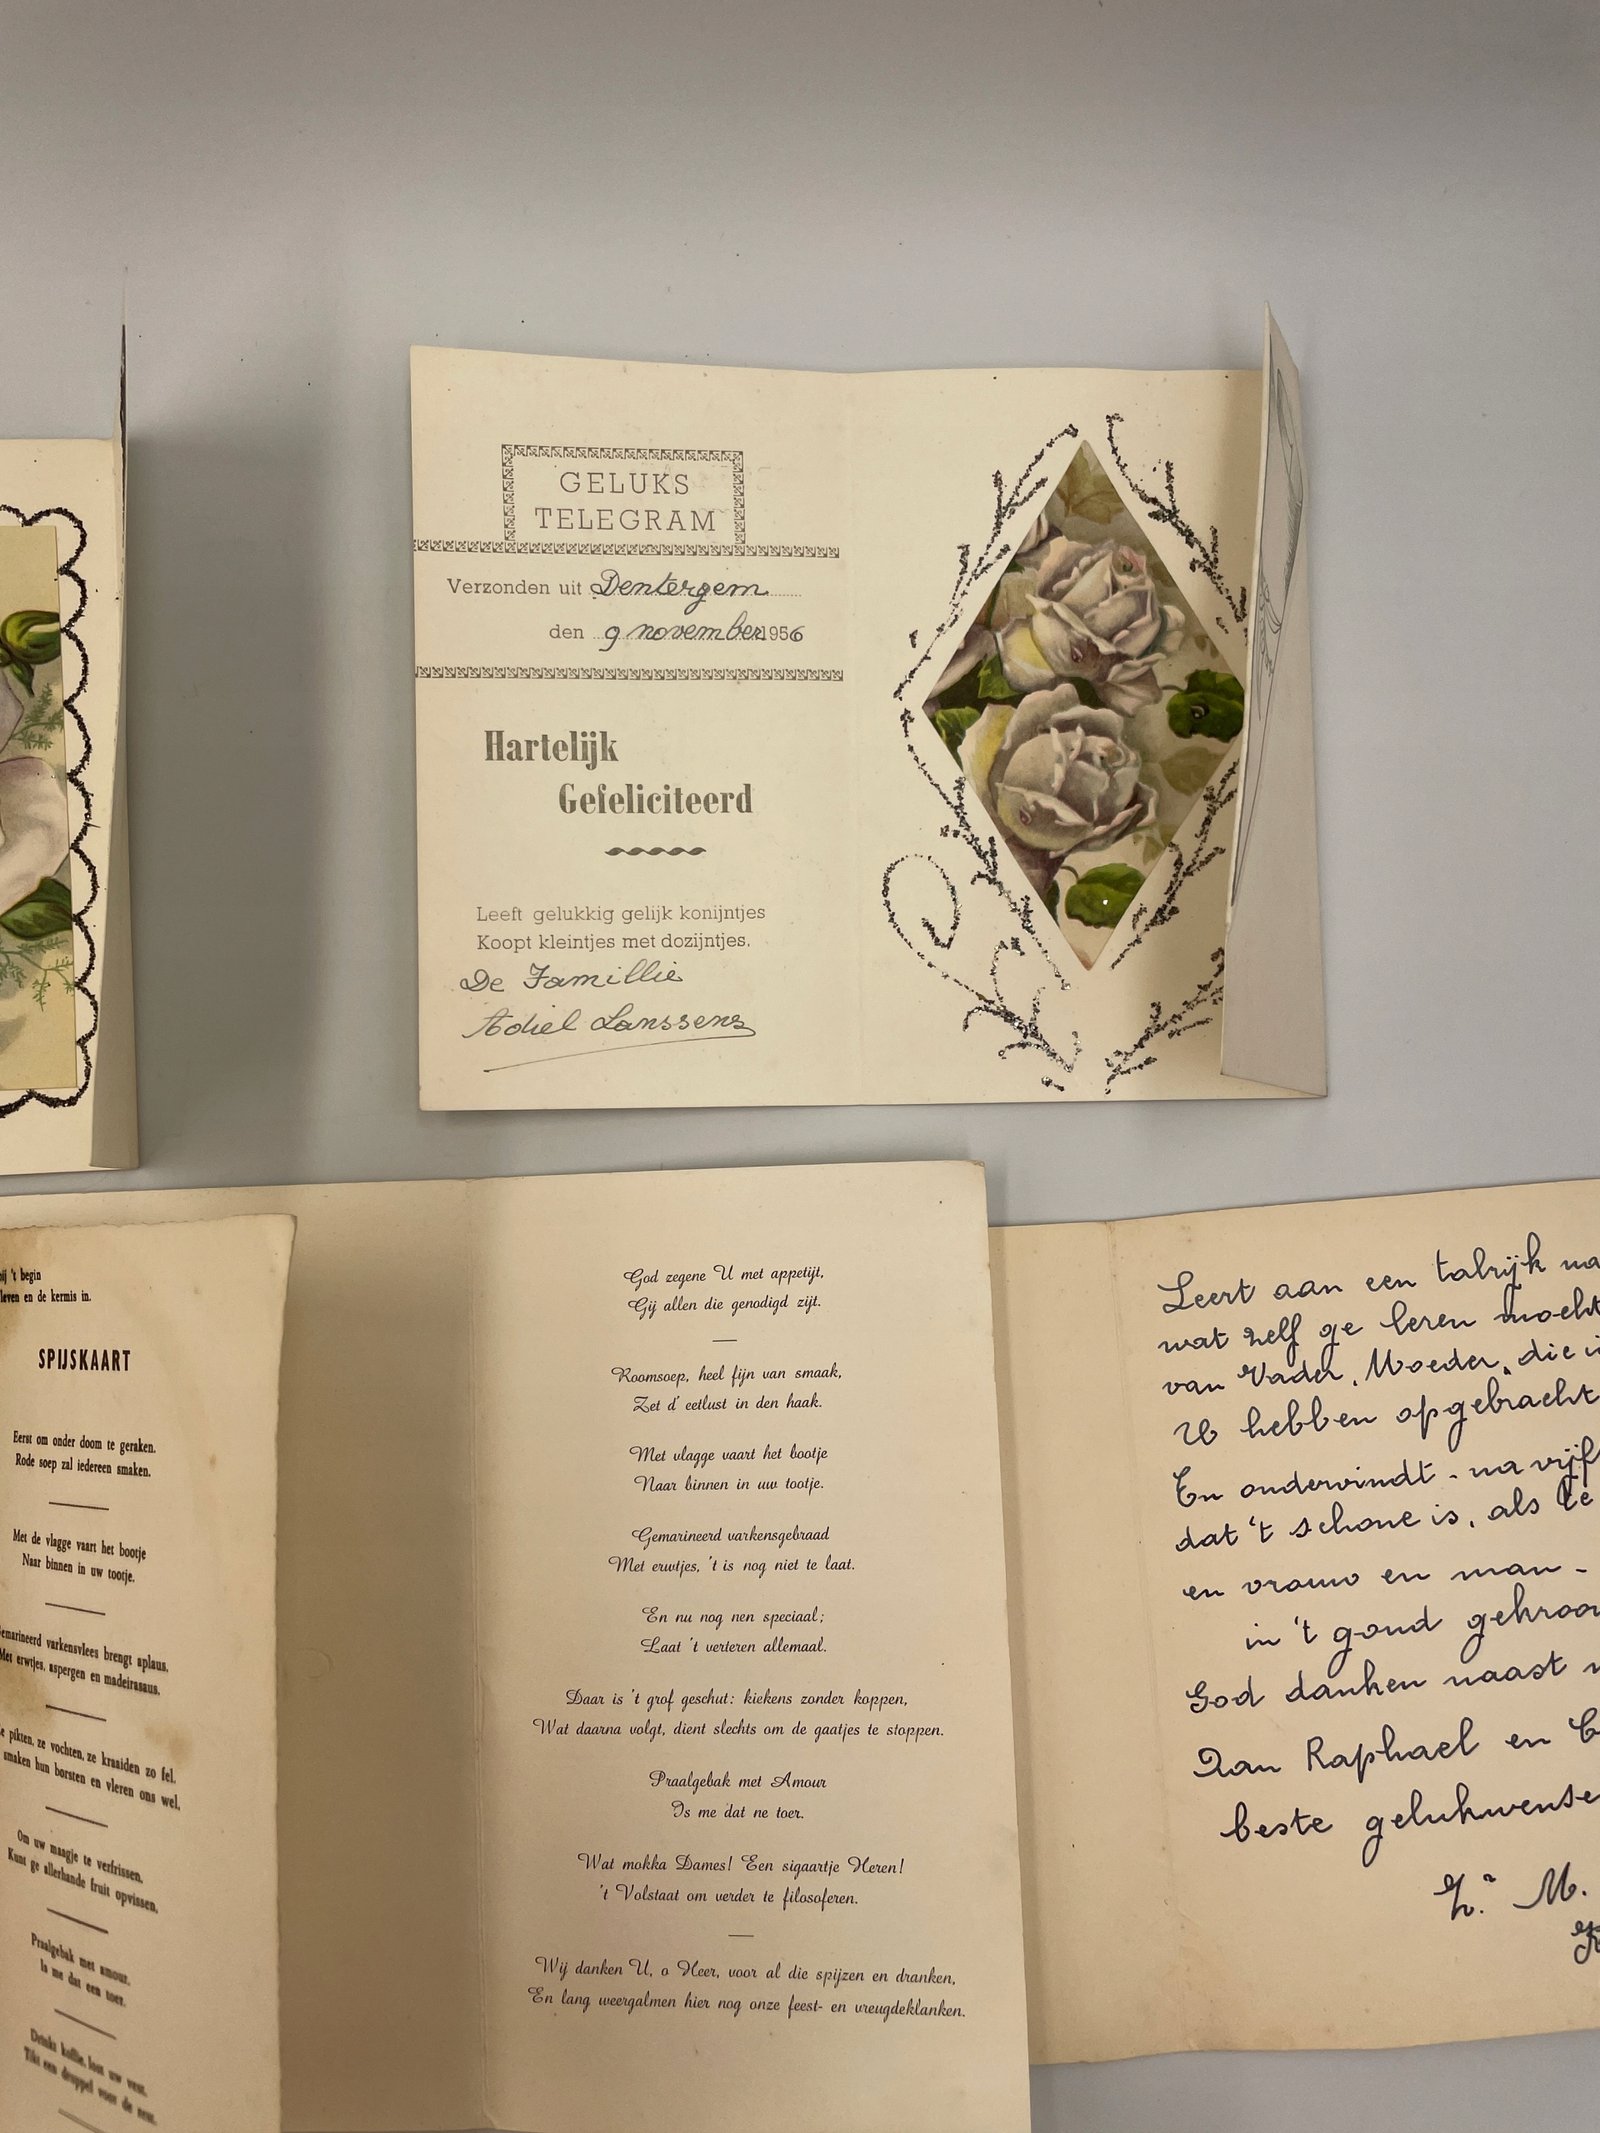 GELUKS
TELEGRAM
Verzonden uit Dentergem
den 9 november 1956
Hartelijk
Gefeliciteerd
Leeft gelukkig gelijk konijntjes
Koopt kleintjes met dozijntjes.
De Famillie
Adiel Lanssens
't begin
leven en de kermis in.
SPIJSKAART
Eerst om onder doom te geraken.
Rode soep zal iedereen smaken.
Met de vlagge vaart het bootje
Naar binnen in uw tootje.
varkensvlees brengt aplaus,
Met erwtjes, aspergen en madeirasaus.
pikten, ze vochten, ze kraaiden zo fel.
smaken hun borsten en vleren ons wel.
Om uw maagje te verfrissen,
Kunt ge allerhande fruit opvissen.
Praalgebak met amour,
Is me dat een toer.
Drinkt koffie, lost uw vest.
Tikt een druppel voor de rest.
God zegene U met appetijt,
Gij allen die genodigd zijt.
Roomsoep, heel fijn van smaak,
Zet d' eetlust in den haak.
Met vlagge vaart het bootje
Naar binnen in uw tootje.
Gemarineerd varkensgebraad
Met erwtjes, 't is nog niet te laat.
En nu nog nen speciaal;
Laat 't verteren allemaal.
Daar is 't grof geschut: kiekens zonder koppen,
Wat daarna volgt, dient slechts om de gaatjes te stoppen.
Praalgebak met Amour
Is me dat ne toer.
Wat mokka Dames! Een sigaartje Heren!
't Volstaat om verder te filosoferen.
Wij danken U, o Heer, voor al die spijzen en dranken,
En lang weergalmen hier nog onze feest- en vreugdeklanken.
Leert aan een talrijk
wat zelf ge leren mocht
van Vader, Moeder, die
U hebben opgebracht
En ondervindt - na vijf
dat 't schone is, als
en vrouw en man -
in 't goud
God danken naast
Aan Raphael en
beste gelukwense
Zr. M.